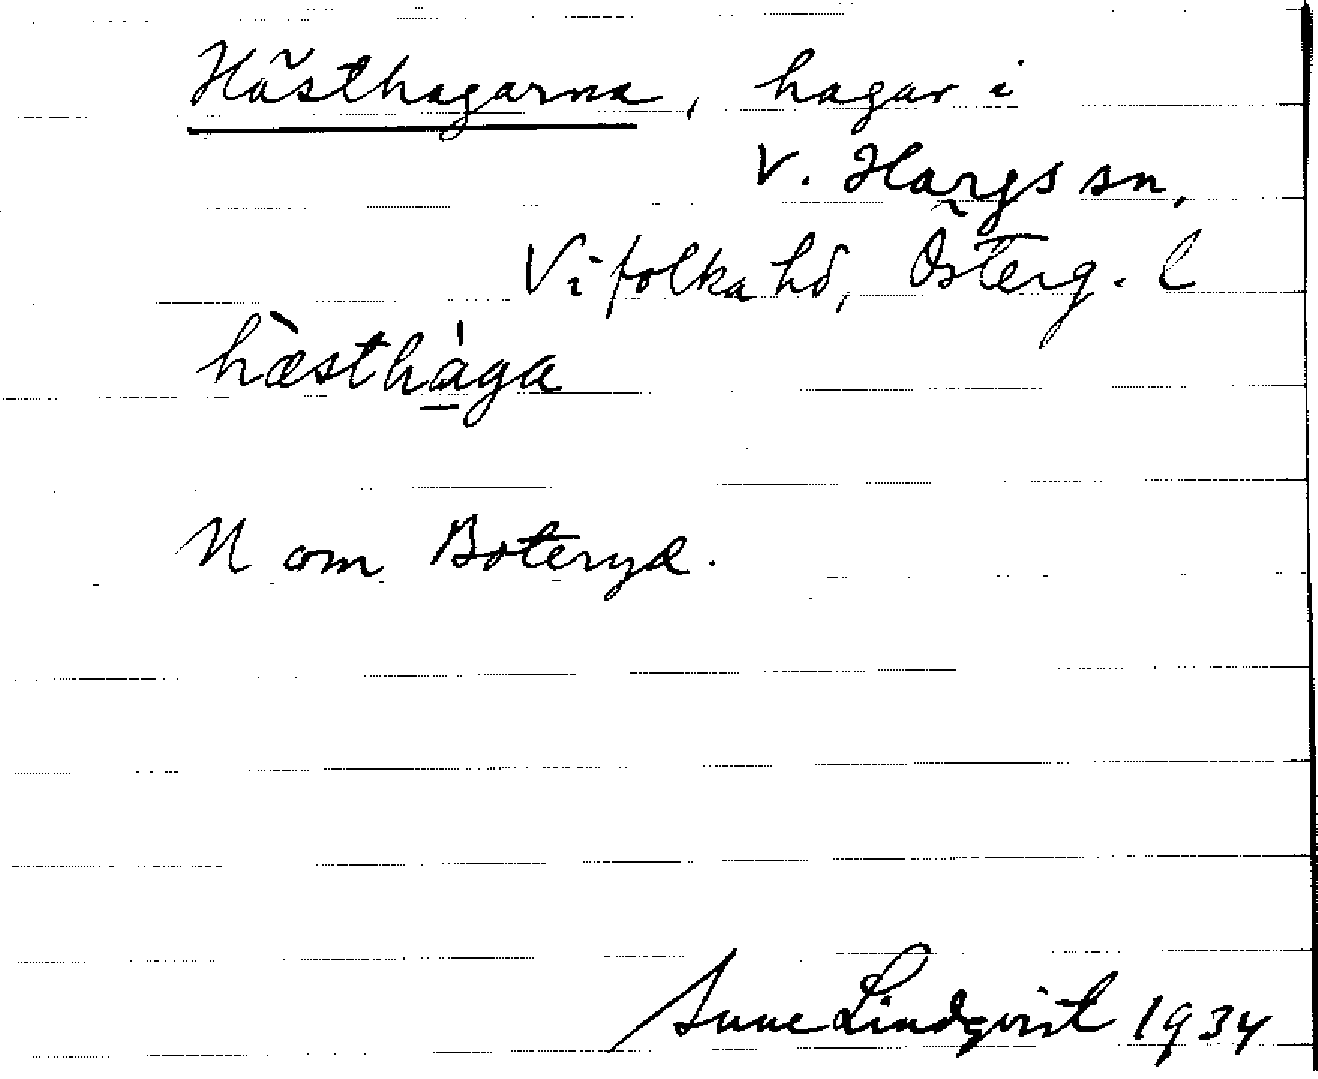 Hästhagarna, hagar i
V. Hargs sn,
Vifolka hd, Österg. l
hæ̀sthа̣́ga
N om Boteryd.
Sune Lindqvist 1934